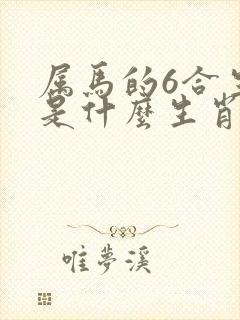 属馬的6合生
是什麼生肖
唯夢溪